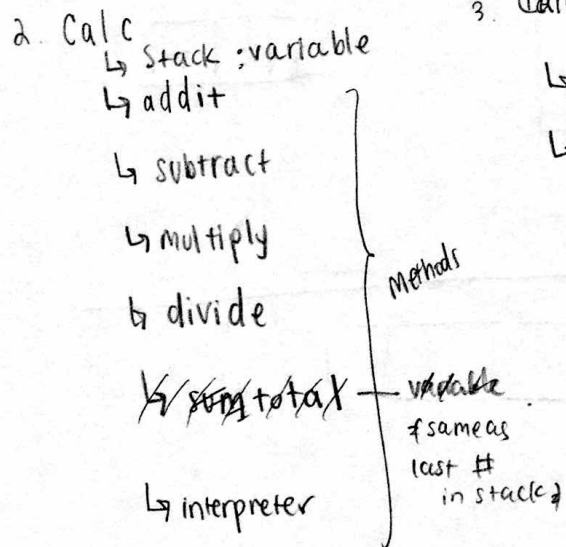 2. Calc
↳ Stack : variable
↳ addit
↳ subtract
↳ multiply
↳ divide
↳ sum total
variable
* same as
last #
in stack *
↳ interpreter
Methods
3.